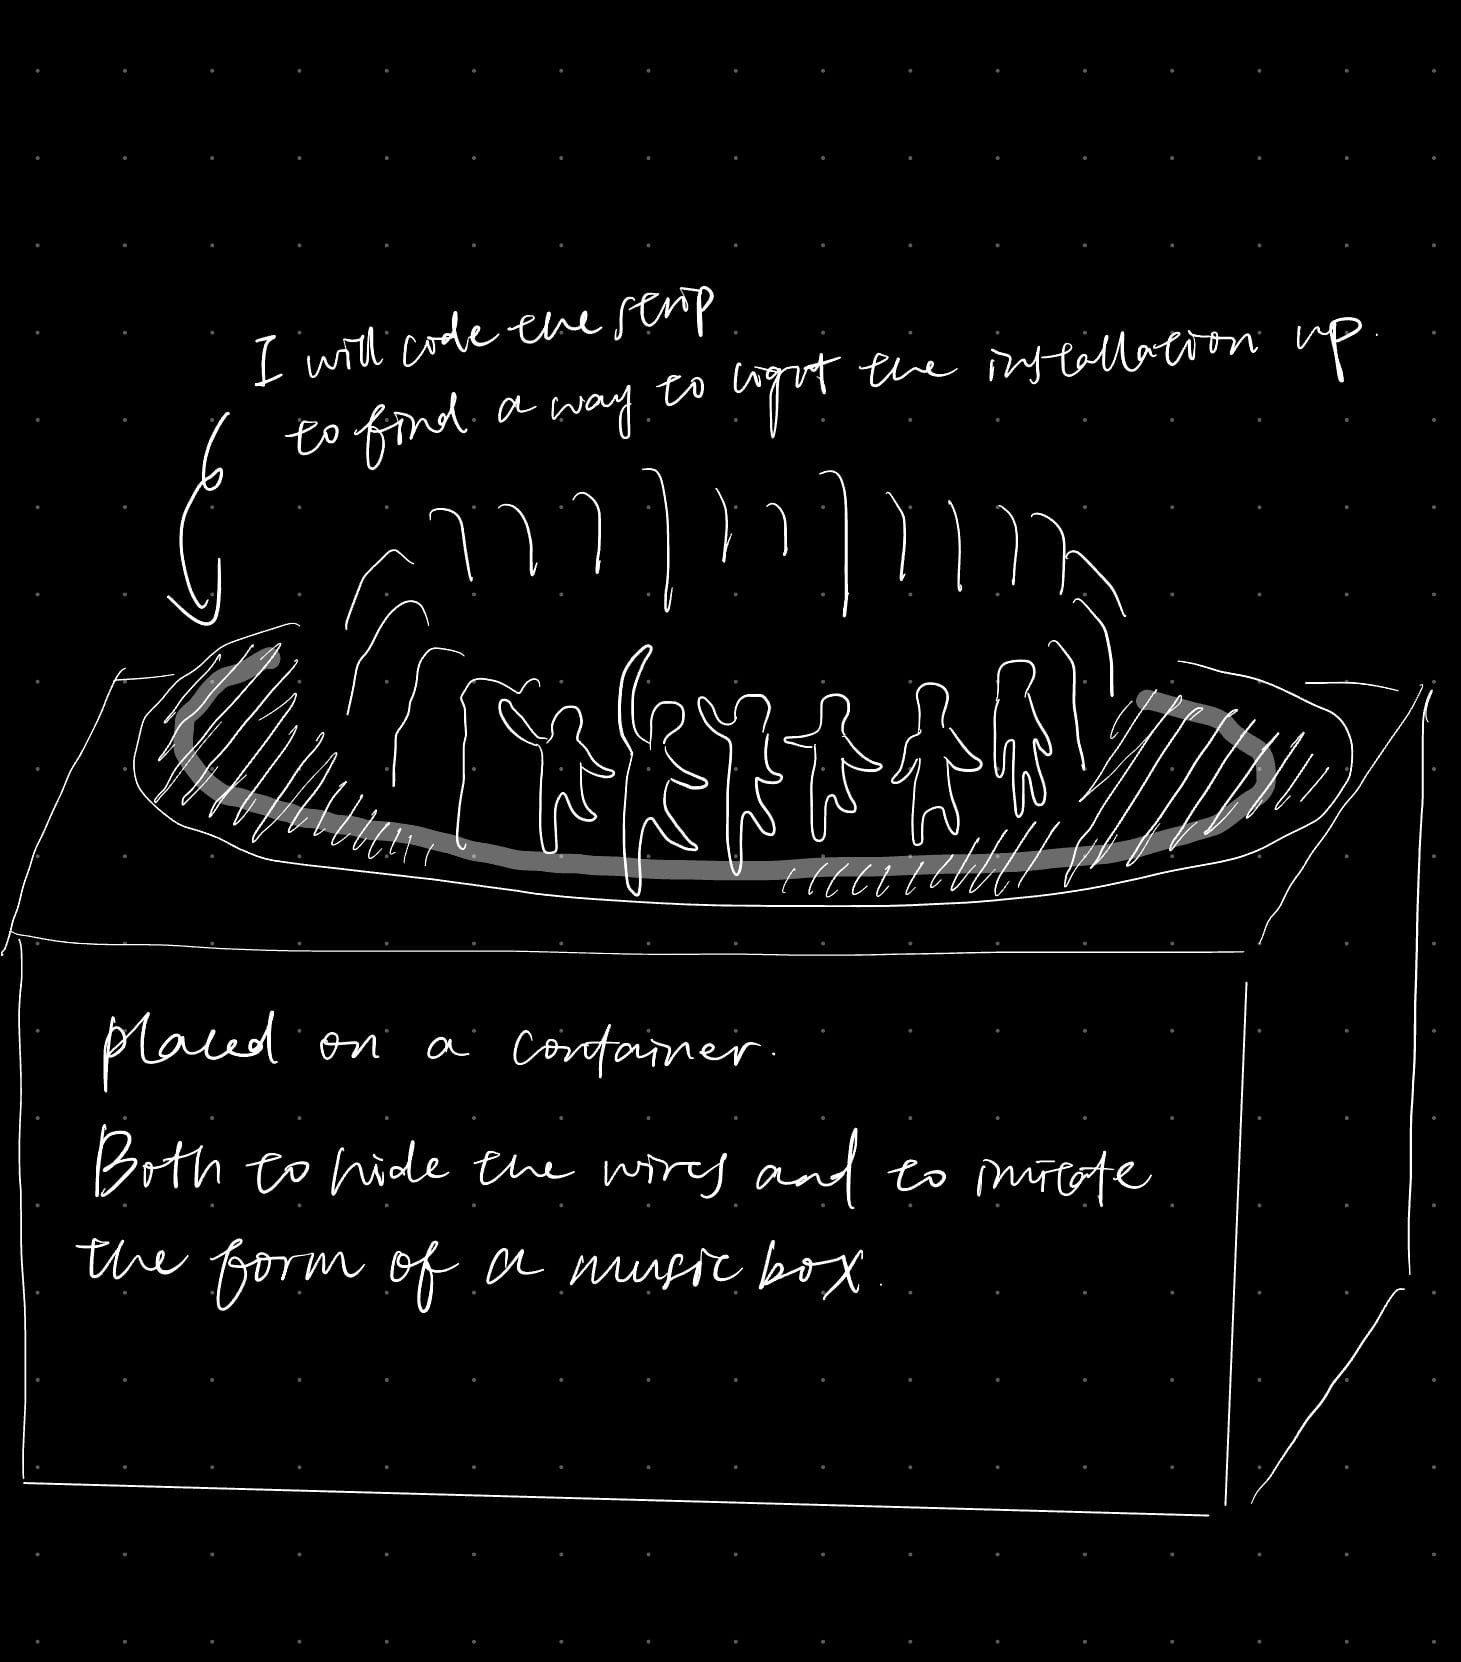 I will code the strip
to find a way to light the installation up.
placed on a container.
Both to hide the wires and to imitate
the form of a music box.